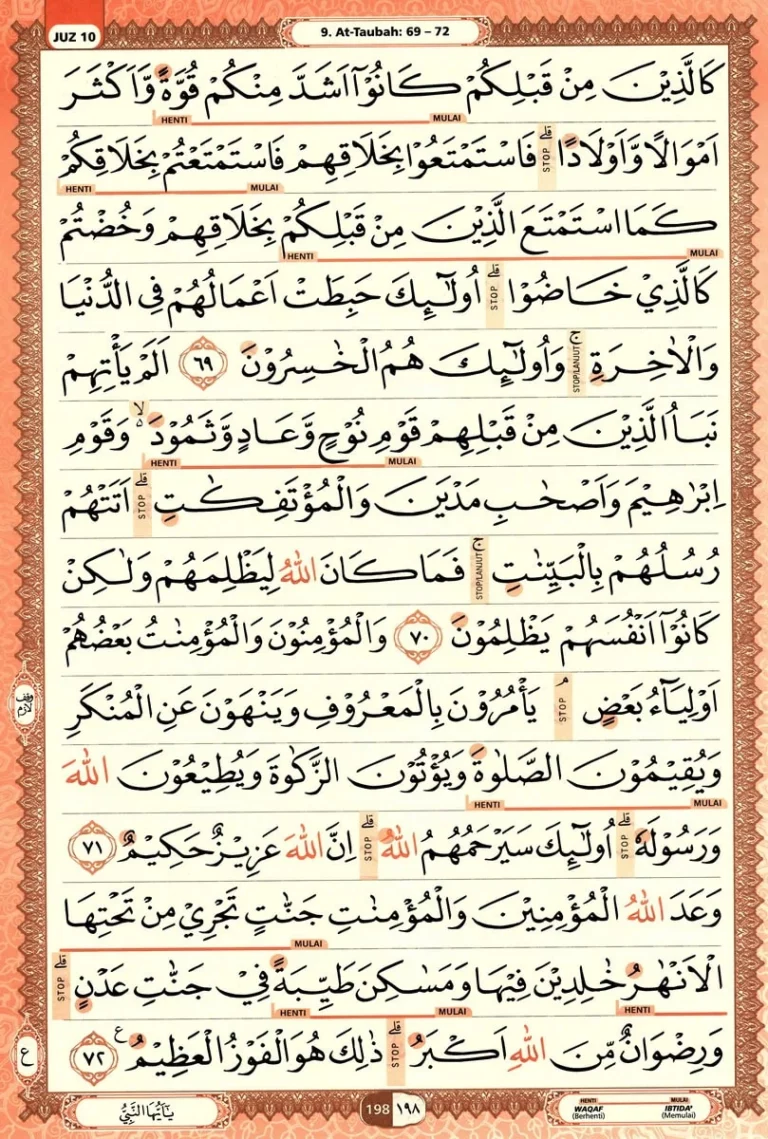 JUZ 10
9. At-Taubah: 69 – 72
كَالَّذِيْنَ مِنْ قَبْلِكُمْ كَانُوْٓا اَشَدَّ مِنْكُمْ قُوَّةً وَّاَكْثَرَ
HENTI MULAI
اَمْوَالًا وَّاَوْلَادًاۗ STOP فَاسْتَمْتَعُوْا بِخَلَاقِهِمْ فَاسْتَمْتَعْتُمْ بِخَلَاقِكُمْ
HENTI MULAI
كَمَا اسْتَمْتَعَ الَّذِيْنَ مِنْ قَبْلِكُمْ بِخَلَاقِهِمْ وَخُضْتُمْ
HENTI MULAI
كَالَّذِيْ خَاضُوْاۗ STOP اُولٰۤىِٕكَ حَبِطَتْ اَعْمَالُهُمْ فِى الدُّنْيَا
وَالْاٰخِرَةِۚ STOP/LANJUT وَاُولٰۤىِٕكَ هُمُ الْخٰسِرُوْنَ ٦٩ اَلَمْ يَأْتِهِمْ
نَبَاُ الَّذِيْنَ مِنْ قَبْلِهِمْ قَوْمِ نُوْحٍ وَّعَادٍ وَّثَمُوْدَ ەۙ وَقَوْمِ
HENTI MULAI
اِبْرٰهِيْمَ وَاَصْحٰبِ مَدْيَنَ وَالْمُؤْتَفِكٰتِۗ STOP اَتَتْهُمْ
رُسُلُهُمْ بِالْبَيِّنٰتِۚ STOP/LANJUT فَمَا كَانَ اللّٰهُ لِيَظْلِمَهُمْ وَلٰكِنْ
كَانُوْٓا اَنْفُسَهُمْ يَظْلِمُوْنَ ٧٠ وَالْمُؤْمِنُوْنَ وَالْمُؤْمِنٰتُ بَعْضُهُمْ
اَوْلِيَاۤءُ بَعْضٍۘ STOP يَأْمُرُوْنَ بِالْمَعْرُوْفِ وَيَنْهَوْنَ عَنِ الْمُنْكَرِ
وقف لازم
وَيُقِيْمُوْنَ الصَّلٰوةَ وَيُؤْتُوْنَ الزَّكٰوةَ وَيُطِيْعُوْنَ اللّٰهَ
HENTI MULAI
وَرَسُوْلَهٗۗ STOP اُولٰۤىِٕكَ سَيَرْحَمُهُمُ اللّٰهُۗ STOP اِنَّ اللّٰهَ عَزِيْزٌ حَكِيْمٌ ٧١
وَعَدَ اللّٰهُ الْمُؤْمِنِيْنَ وَالْمُؤْمِنٰتِ جَنّٰتٍ تَجْرِيْ مِنْ تَحْتِهَا
MULAI
الْاَنْهٰرُ خٰلِدِيْنَ فِيْهَا وَمَسٰكِنَ طَيِّبَةً فِيْ جَنّٰتِ عَدْنٍۗ STOP
HENTI MULAI HENTI
وَرِضْوَانٌ مِّنَ اللّٰهِ اَكْبَرُۗ STOP ذٰلِكَ هُوَ الْفَوْزُ الْعَظِيْمُ ࣖ ٧٢
ع
يٰٓاَيُّهَا النَّبِيُّ
198 ١٩٨
HENTI MULAI
WAQAF IBTIDA'
(Berhenti) (Memulai)